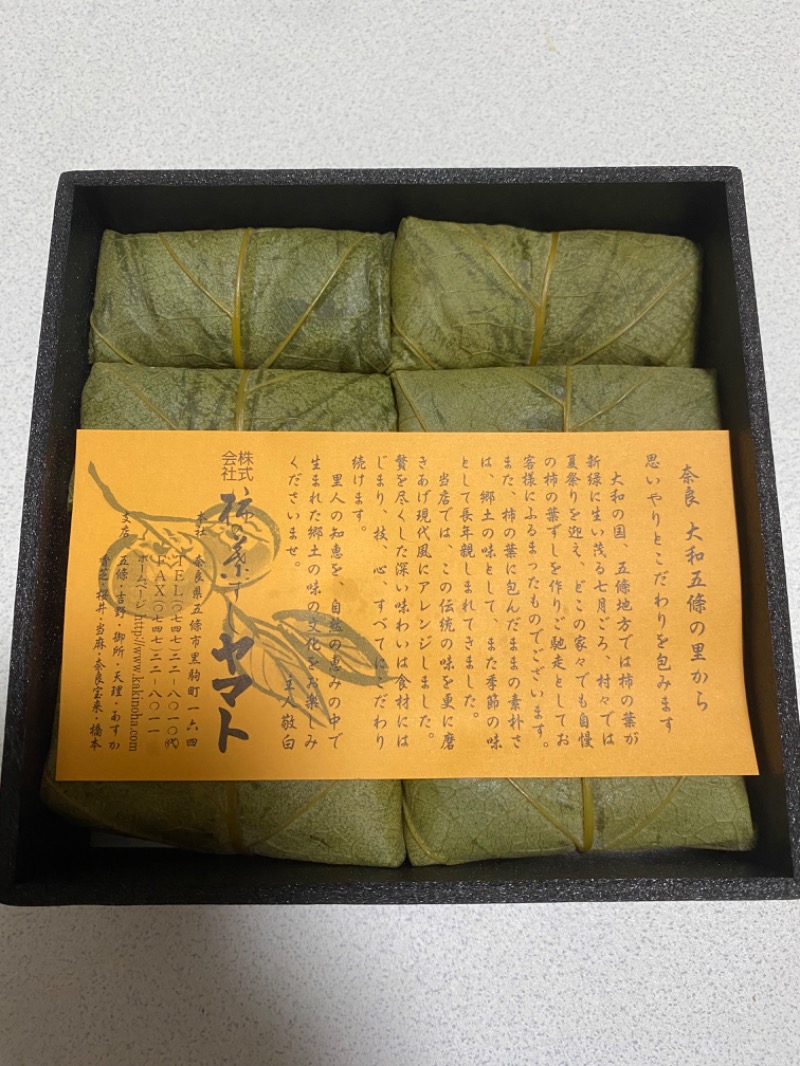 奈良 大和五條の里から
思いやりとこだわりを包みます
大和の国、五條地方では柿の葉が
新緑に生い茂る七月ごろ、村々では
夏祭りを迎え、どこの家々でも自慢
の柿の葉ずしを作りご馳走としてお
客様にふるまったものでございます。
また、柿の葉に包んだままの素朴さ
は、郷土の味として、また季節の味
として長年親しまれてきました。
当店では、この伝統の味を更に磨
きあげ現代風にアレンジしました。
贅を尽くした深い味わいは食材には
じまり、技、心、すべてにこだわり
続けます。
里人の知恵を、自然の恵みの中で
生まれた郷土の味の文化をお楽しみ
くださいませ。
主人敬白
株式会社 柿の葉ずしヤマト
本社 奈良県五條市黒駒町一六四
TEL(〇七四七)二二-八〇一〇㈹
FAX(〇七四七)二二-八〇一一
ホームページ http://www.kakinoha.com
支店 五條・吉野・御所・天理・あすか
香芝・桜井・当麻・奈良宝来・橋本